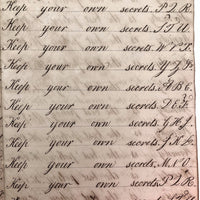 Keep your own secrets. P.Q.R.
Keep your own secrets. S.T.U.
Keep your own secrets.
Keep your own secrets.
Keep your own secrets. A.B.C.
Keep your own secrets. D.E.F.
Keep your own secrets. G.H.I.
Keep your own secrets.
Keep your own secrets. M.N.O.
Keep your own secrets. P.Q.R.